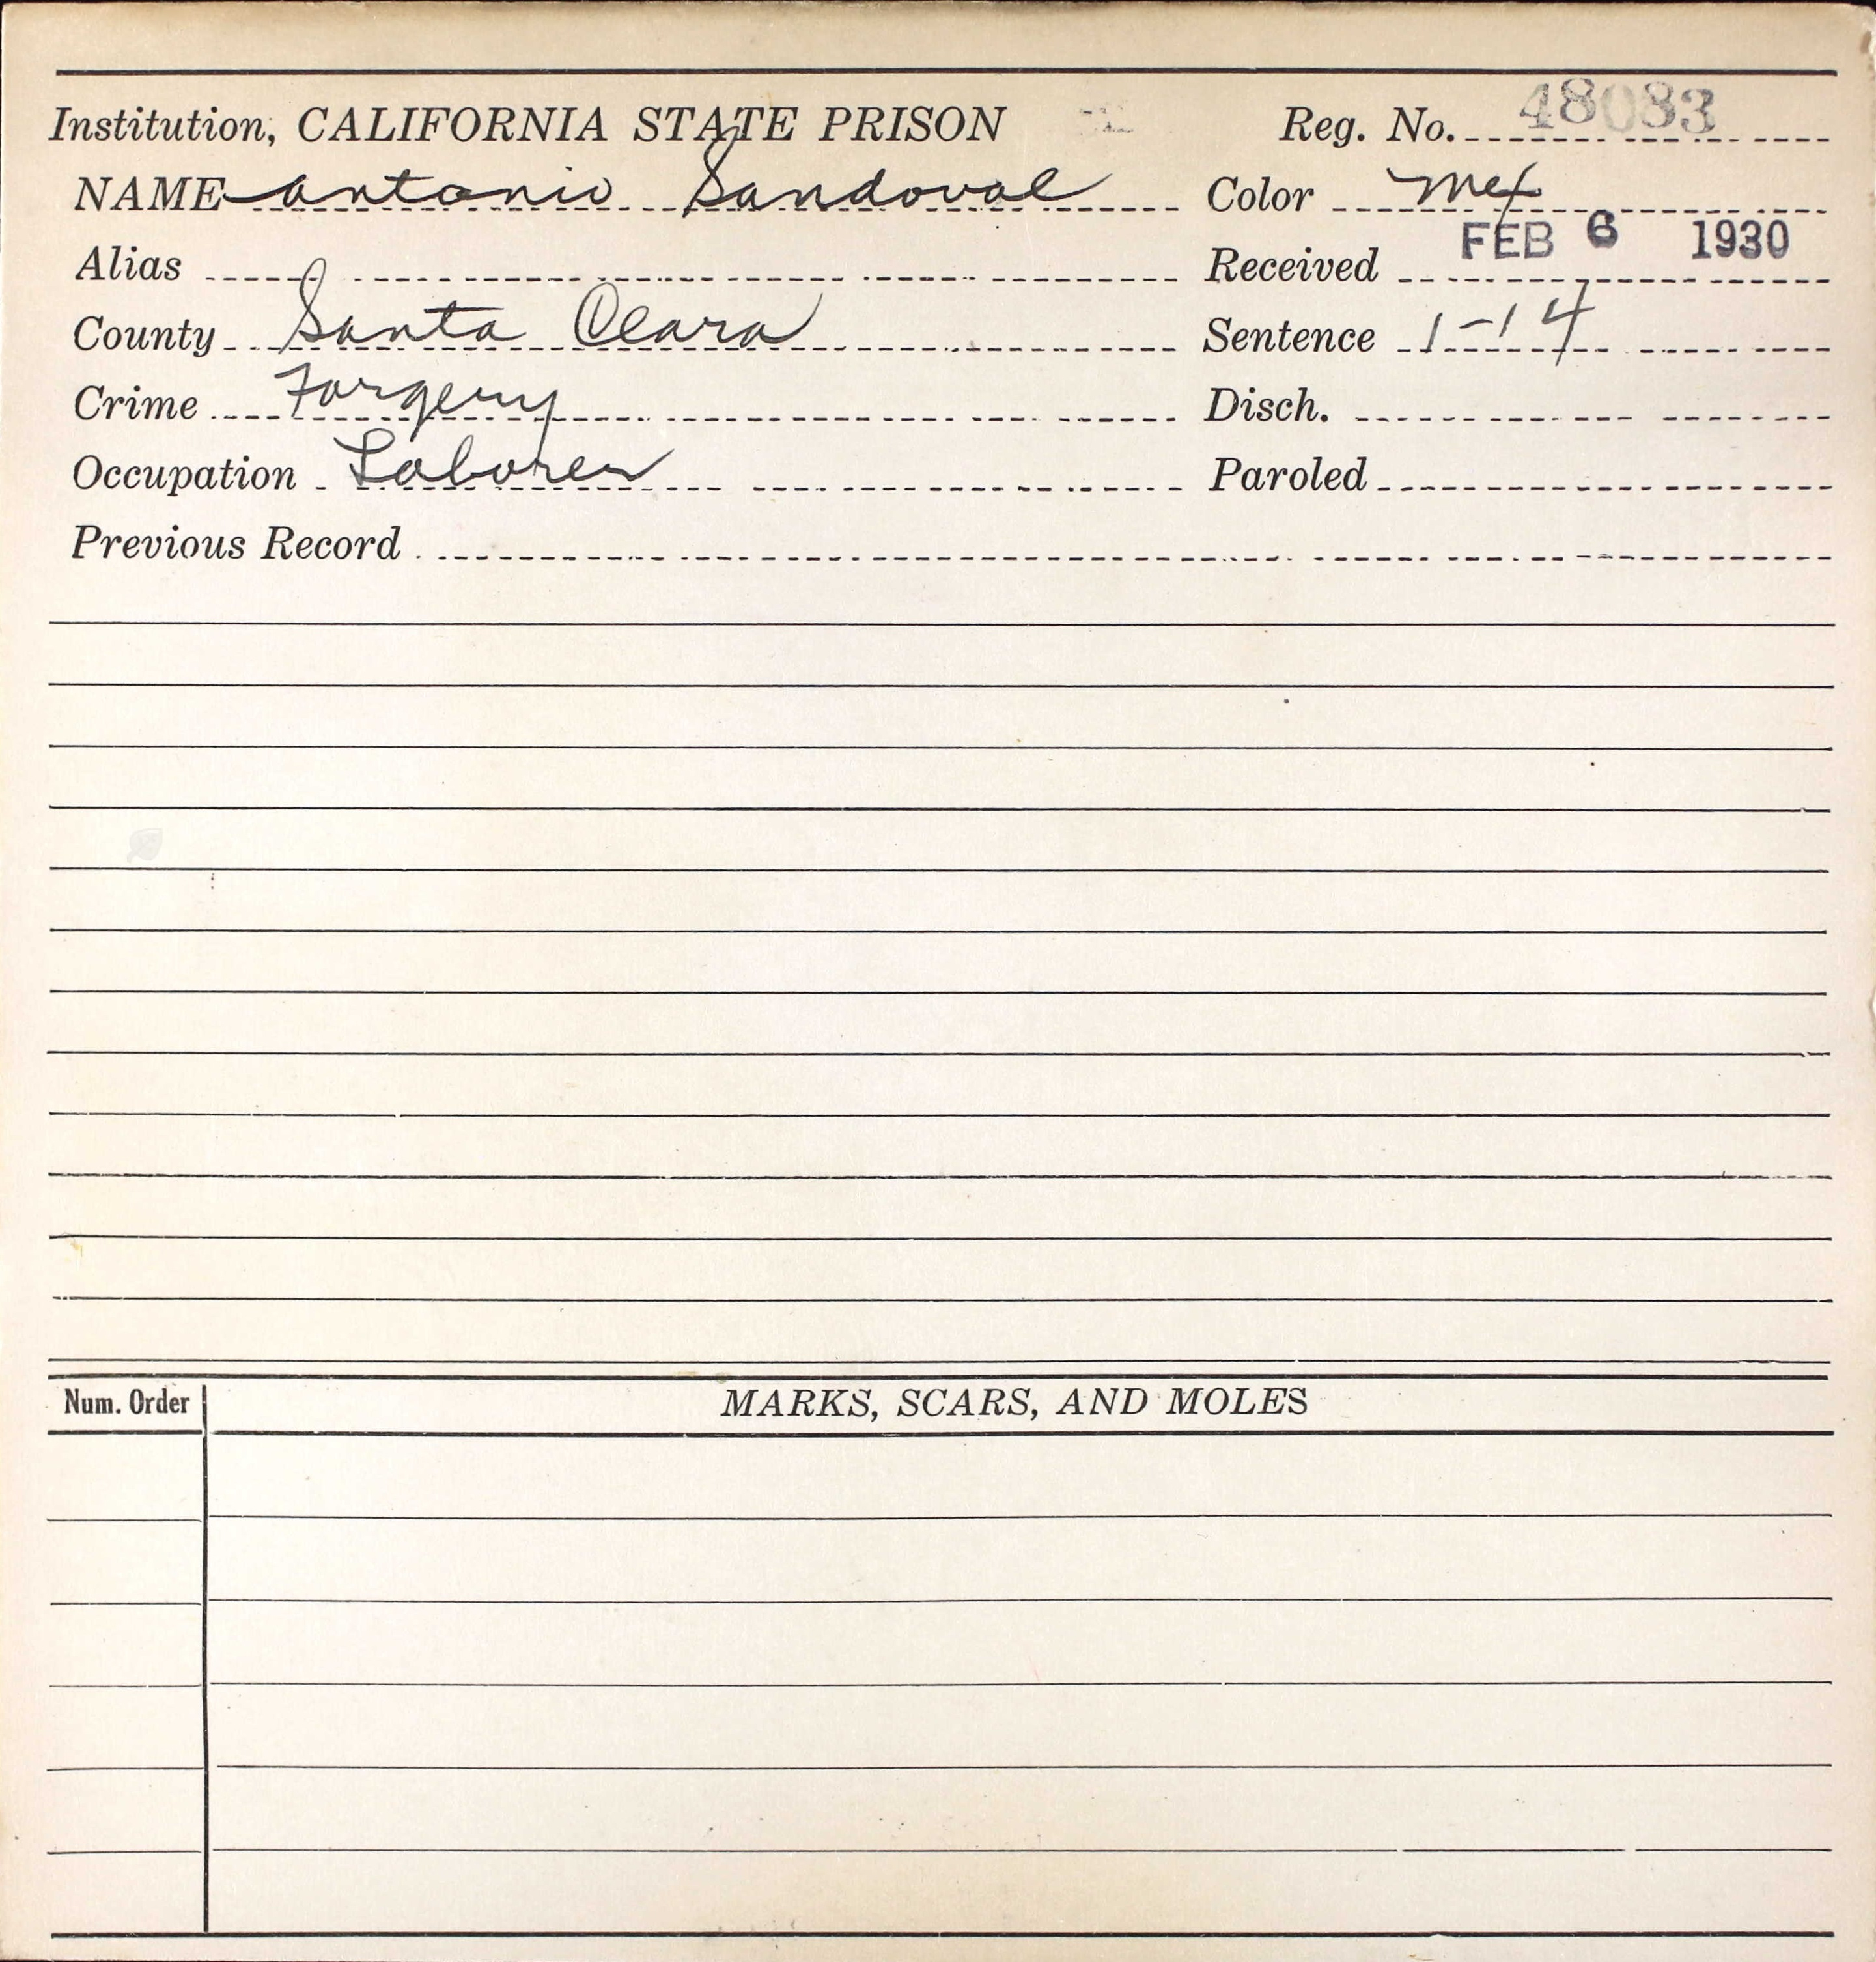 Institution, CALIFORNIA STATE PRISON Reg. No. 48083
NAME Antonio Sandoval Color Mex
Alias Received FEB 6 1930
County Santa Clara Sentence 1-14
Crime Forgery Disch.
Occupation Laborer Paroled
Previous Record
Num. Order MARKS, SCARS, AND MOLES